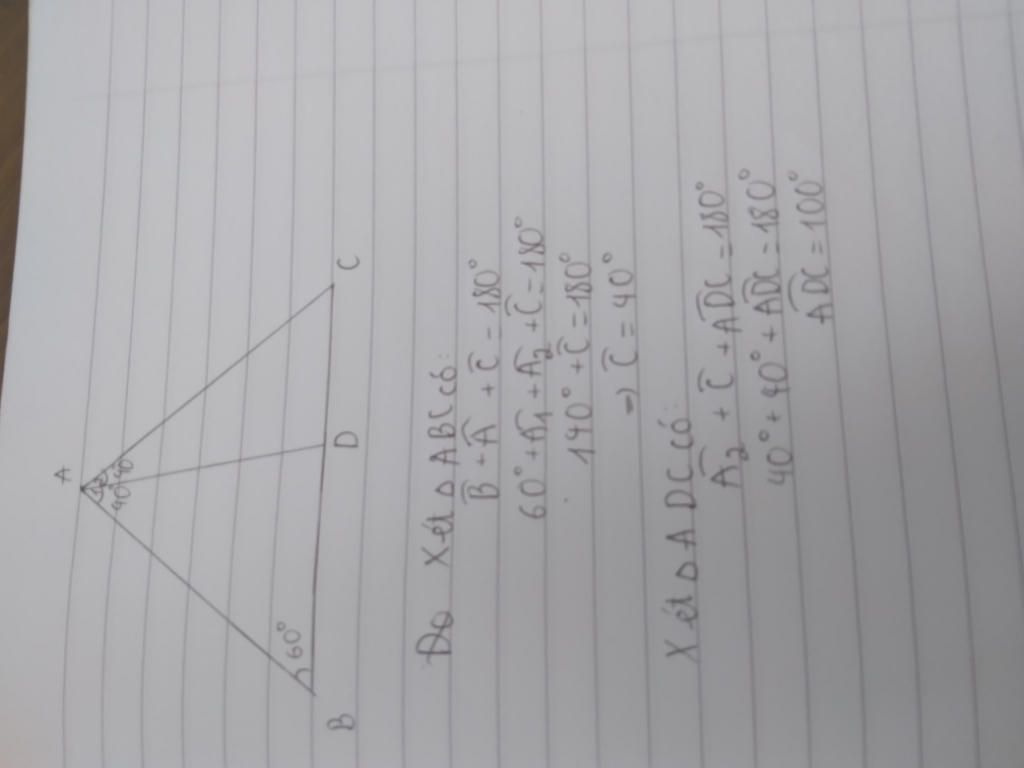 A
40° 40
60°
B
D
C
Xét Δ ABC có:
B̂ + Â + Ĉ = 180°
60° + Â1 + Â2 + Ĉ = 180°
140° + Ĉ = 180°
⇒ Ĉ = 40°
Xét Δ ADC có:
Â2 + Ĉ + ADC = 180°
40° + 40° + ADC = 180°
ADC = 100°